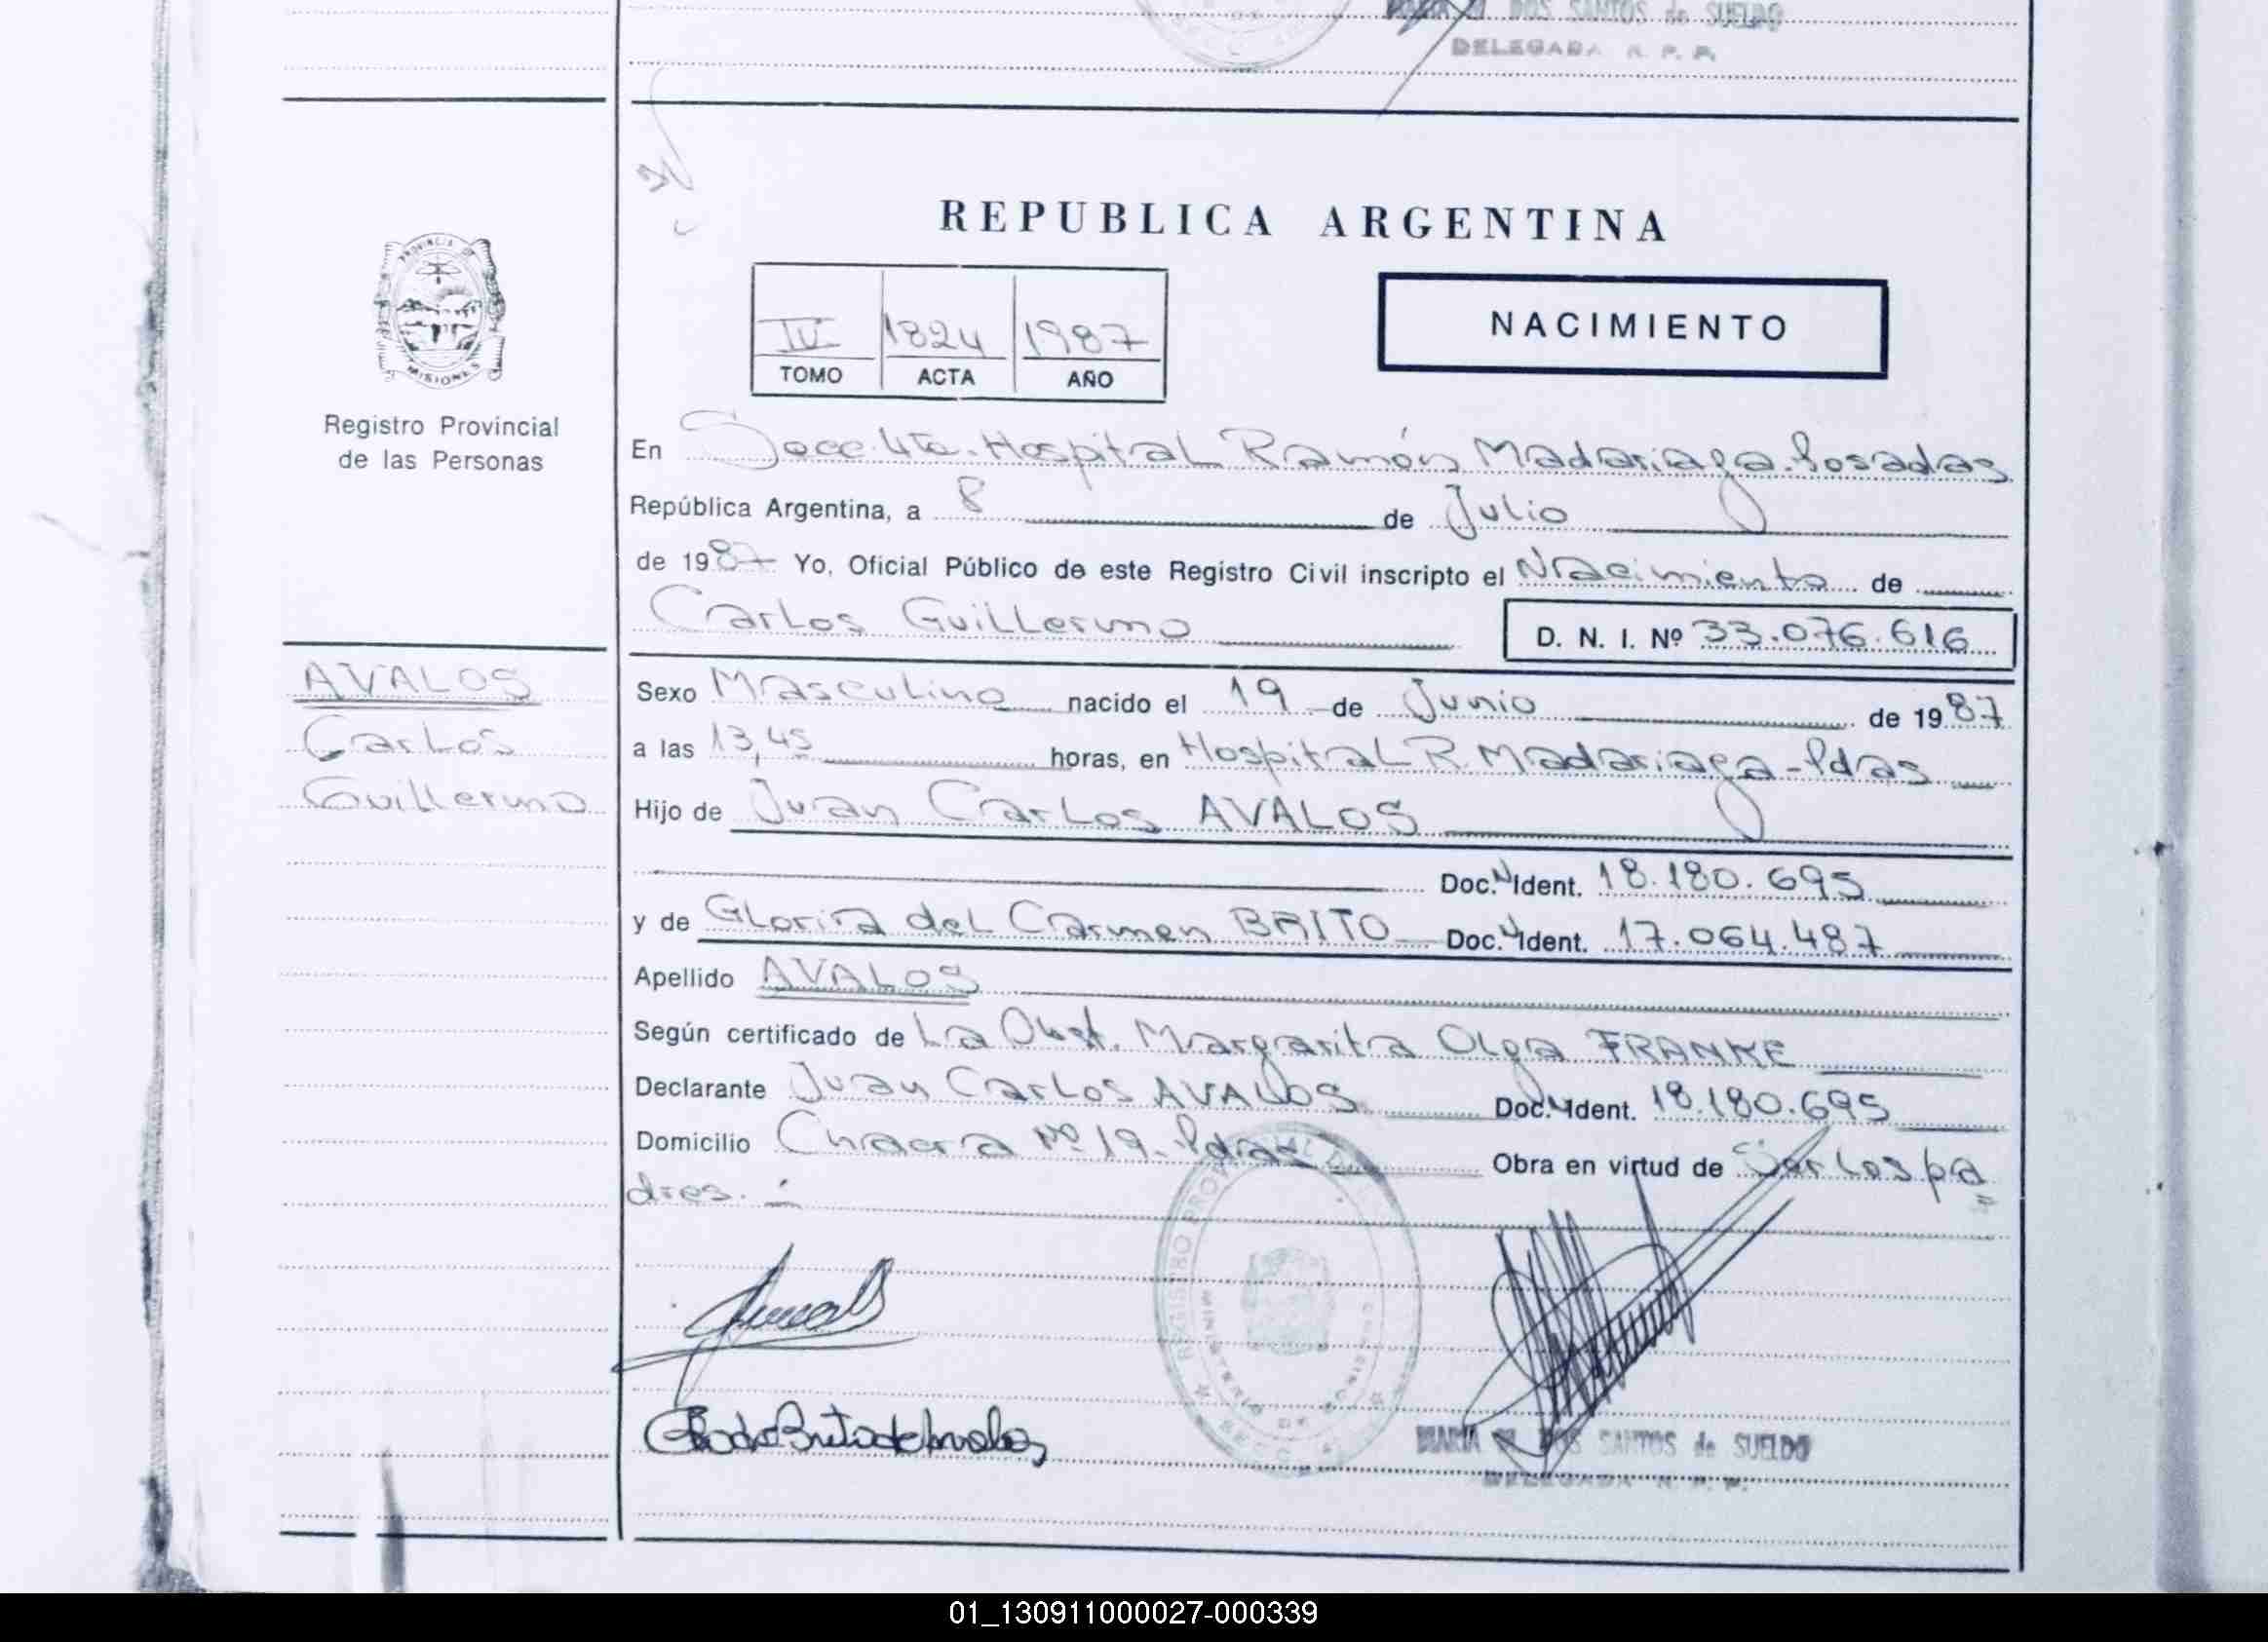 DOS SANTOS de SUELDO
DELEGADA R. P. P.
REPUBLICA ARGENTINA
PROVINCIA DE
MISIONES
IV 1824 1987
TOMO ACTA AÑO
NACIMIENTO
Registro Provincial
de las Personas
En Secc. 4ta. Hospital Ramón Madariaga. Posadas
República Argentina, a 8 de Julio
de 1987 Yo, Oficial Público de este Registro Civil inscripto el Nacimiento de
Carlos Guillermo
D. N. I. Nº 33.076.616
AVALOS
Carlos
Guillermo
Sexo Masculino nacido el 19 de Junio de 1987
a las 13,45 horas, en Hospital R. Madariaga - Pdas
Hijo de Juan Carlos AVALOS
Doc. N Ident. 18.180.695
y de Gloria del Carmen BRITO Doc. N Ident. 17.064.487
Apellido AVALOS
Según certificado de La Obst. Margarita Olga FRANKE
Declarante Juan Carlos AVALOS Doc. N Ident. 18.180.695
Domicilio Chacra Nº 19 - Pdas Obra en virtud de Ser los pa=
dres. -
REGISTRO PROVINCIAL
MARIA DOS SANTOS de SUELDO
DELEGADA R. P. P.
01_130911000027-000339